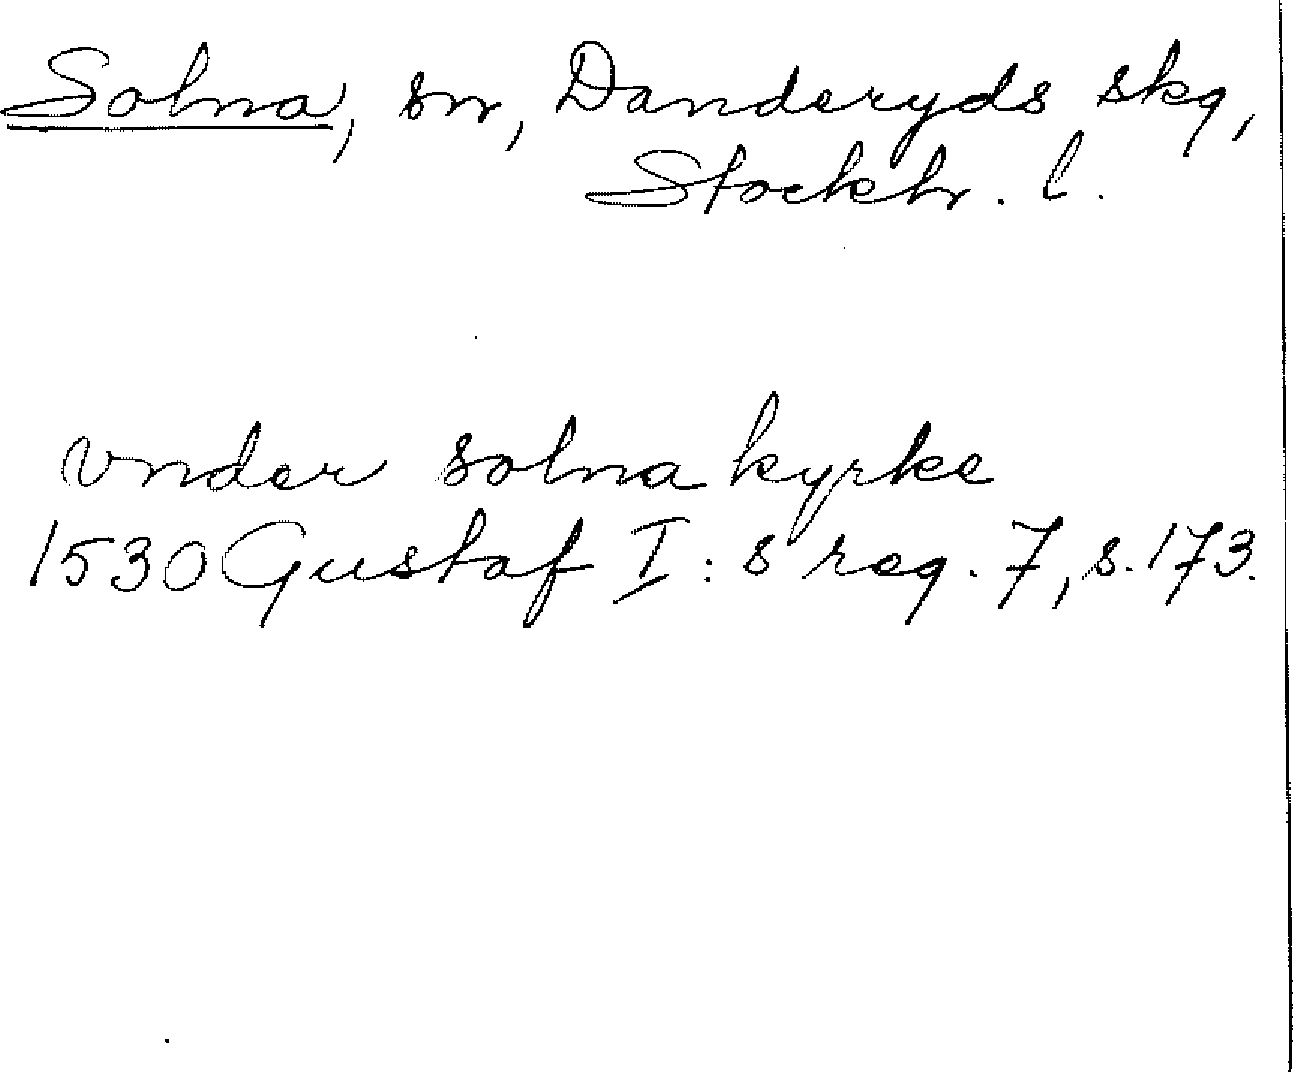 Solna, sn, Danderyds skg,
Stockh. l.
vnder solna kyrke
1530 Gustaf I:s reg. 7, s. 173.